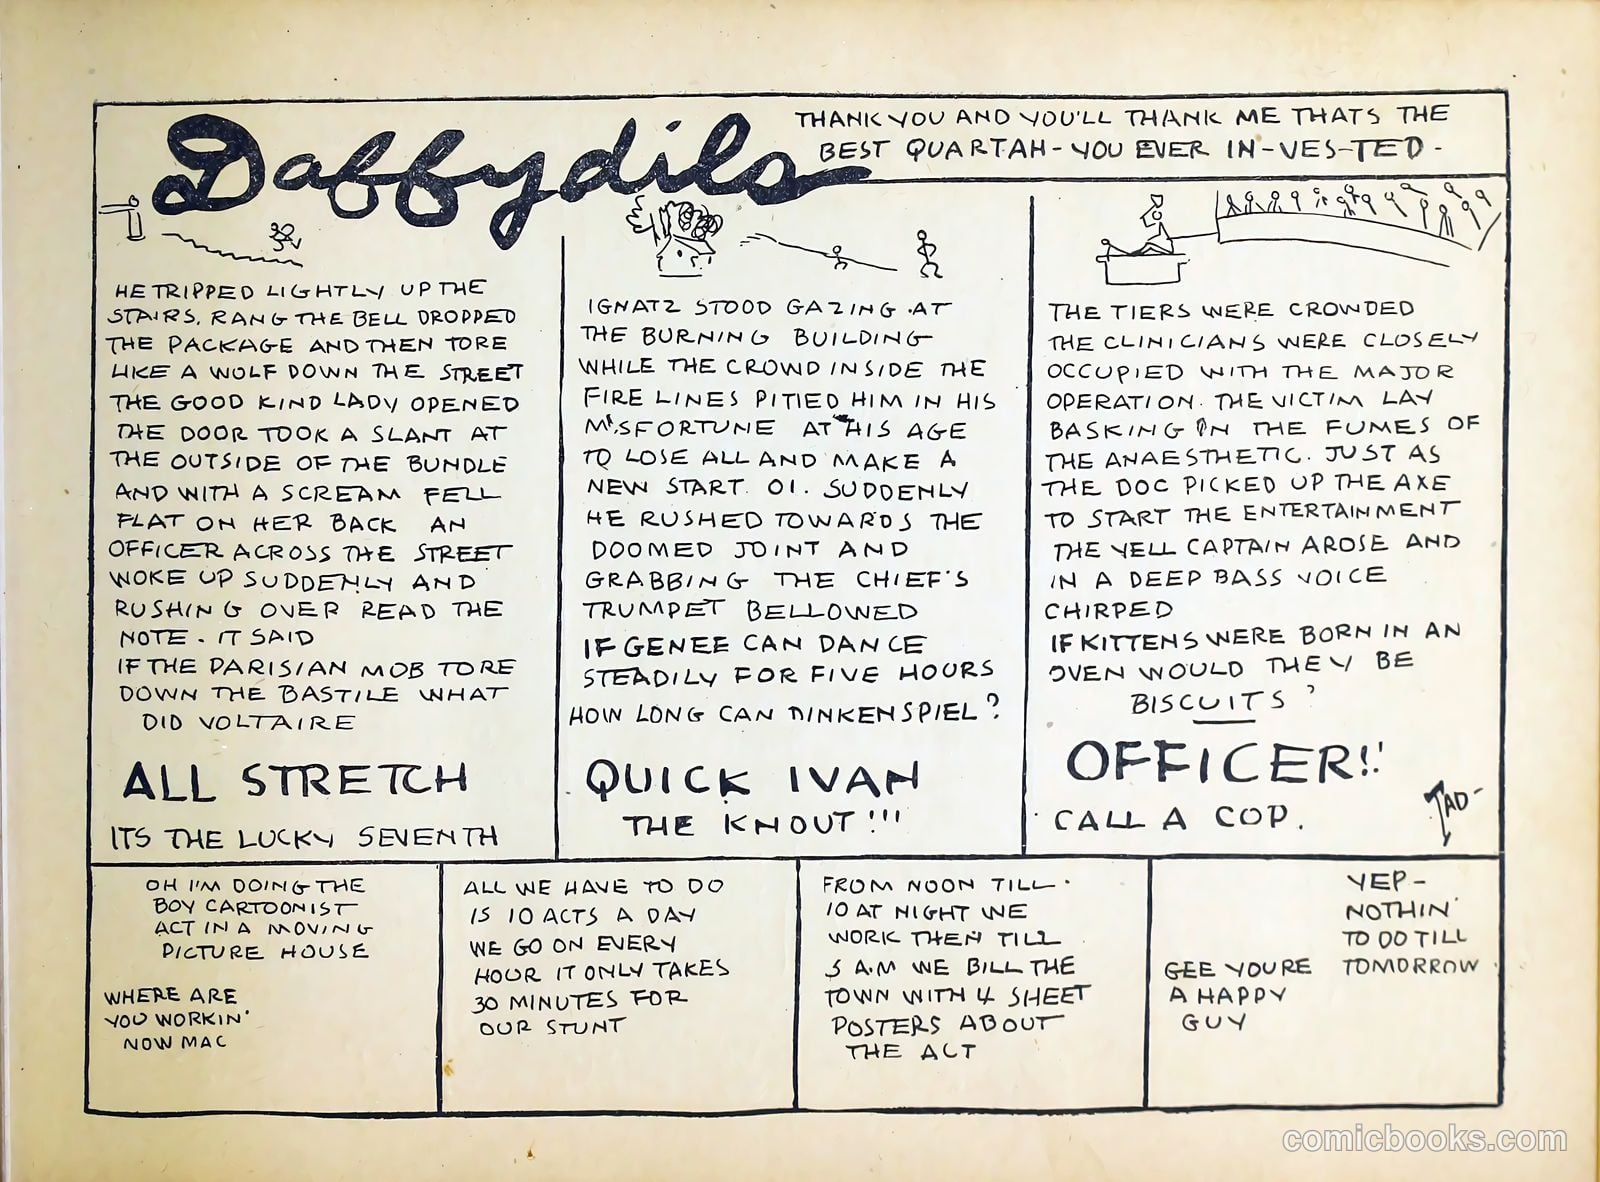 Daffydils
THANK YOU AND YOU'LL THANK ME THATS THE
BEST QUARTAH - YOU EVER IN-VES-TED -
HE TRIPPED LIGHTLY UP THE
STAIRS. RANG THE BELL DROPPED
THE PACKAGE AND THEN TORE
LIKE A WOLF DOWN THE STREET
THE GOOD KIND LADY OPENED
THE DOOR TOOK A SLANT AT
THE OUTSIDE OF THE BUNDLE
AND WITH A SCREAM FELL
FLAT ON HER BACK AN
OFFICER ACROSS THE STREET
WOKE UP SUDDENLY AND
RUSHING OVER READ THE
NOTE - IT SAID
IF THE PARISIAN MOB TORE
DOWN THE BASTILE WHAT
DID VOLTAIRE
ALL STRETCH
ITS THE LUCKY SEVENTH
IGNATZ STOOD GAZING AT
THE BURNING BUILDING
WHILE THE CROWD INSIDE THE
FIRE LINES PITIED HIM IN HIS
MISFORTUNE AT HIS AGE
TO LOSE ALL AND MAKE A
NEW START. OI. SUDDENLY
HE RUSHED TOWARDS THE
DOOMED JOINT AND
GRABBING THE CHIEF'S
TRUMPET BELLOWED
IF GENEE CAN DANCE
STEADILY FOR FIVE HOURS
HOW LONG CAN DINKENSPIEL?
QUICK IVAN
THE KNOUT!!!
THE TIERS WERE CROWDED
THE CLINICIANS WERE CLOSELY
OCCUPIED WITH THE MAJOR
OPERATION. THE VICTIM LAY
BASKING IN THE FUMES OF
THE ANAESTHETIC. JUST AS
THE DOC PICKED UP THE AXE
TO START THE ENTERTAINMENT
THE YELL CAPTAIN AROSE AND
IN A DEEP BASS VOICE
CHIRPED
IF KITTENS WERE BORN IN AN
OVEN WOULD THEY BE
BISCUITS?
OFFICER!!
CALL A COP.
TAD-
OH I'M DOING THE
BOY CARTOONIST
ACT IN A MOVING
PICTURE HOUSE
WHERE ARE
YOU WORKIN'
NOW MAC
ALL WE HAVE TO DO
IS 10 ACTS A DAY
WE GO ON EVERY
HOUR IT ONLY TAKES
30 MINUTES FOR
OUR STUNT
FROM NOON TILL
10 AT NIGHT WE
WORK THEN TILL
5 A.M WE BILL THE
TOWN WITH 4 SHEET
POSTERS ABOUT
THE ACT
GEE YOURE
A HAPPY
GUY
YEP -
NOTHIN'
TO DO TILL
TOMORROW
comicbooks.com